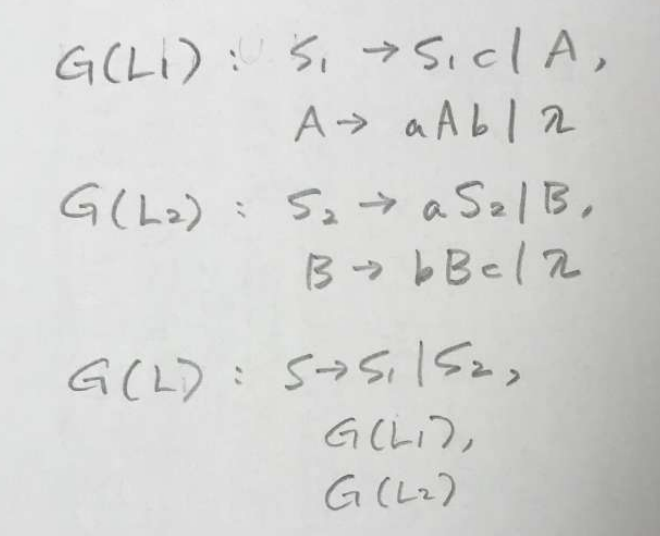 G(L1) : S₁ → S₁c | A,
A → aAb | λ
G(L₂) : S₂ → aS₂ | B,
B → bBc | λ
G(L) : S → S₁ | S₂,
G(L₁),
G(L₂)